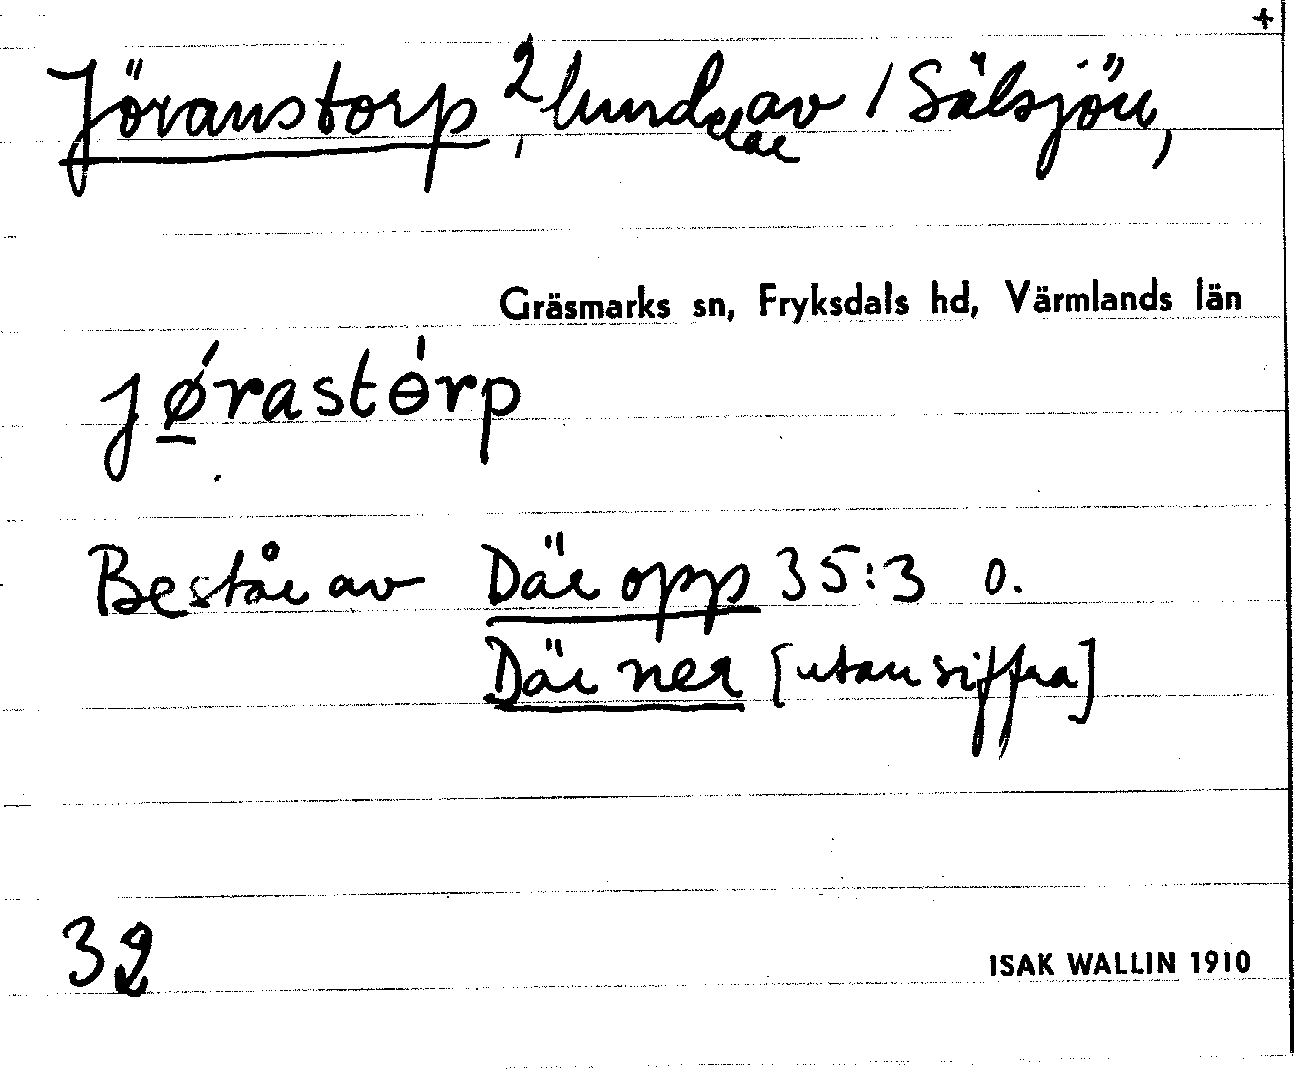 +
Jöranstorp, 2 hemdelar av 1 Sälsjön,
Gräsmarks sn, Fryksdals hd, Värmlands län
jørastɵrp
Består av Där opp 35:3 o.
Där ner [utan siffra]
32
ISAK WALLIN 1910